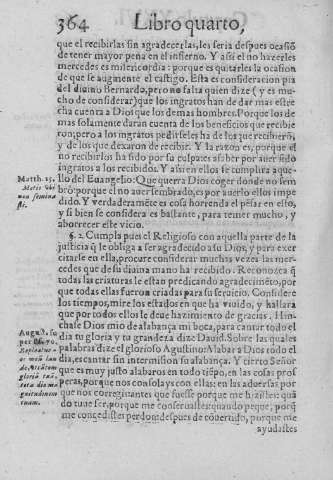 364 Libro quarto,
que el recibirlas sin agradecerlas, les seria despues ocasiõ
de tener mayor pena en el infierno. Y assi el no hazerles
mercedes es misericordia: porque es quitarles la ocasion
de que se augmente el castigo. Esta es consideracion pia
del diuino Bernardo, pero no falta quien dize (y es mu-
cho de considerar) que los ingratos han de dar mas estre
cha cuenta a Dios que los demas hombres. Porque los de
mas solamente daran cuenta de los beneficios que recibie
ron; pero a los ingratos pedirseles ha de los que recibierõ,
y de los que dexaron de recibir. Y la razon es, porque el
no recibirlos ha sido por su culpa: es a saber por auer sido
ingratos a los recibidos. Y assi en ellos se cumplira aque-
Matth. 25.
Metis vbi
non semina
sti.
llo del Euangelio: Que querra Dios coger donde no sem
brò: porque el no auer sembrado, es por auerlo ellos impe
dido. Y verdaderamẽte es cosa horrenda el pẽsar en esto,
y si bien se considera es bastante, para temer mucho, y
aborrecer este vicio.
§. 2. Cumpla pues el Religioso con aquella parte de la
justicia q̃ le obliga a ser agradecido a su Dios, y para exer
citarse en ella, procure considerar muchas vezes las mer-
cedes que de su diuina mano ha recibido. Reconozca q̃
todas las criaturas le estan predicando agradecimiẽto, por
que todas ellas fueron criadas para su seruicio. Considere
los tiempos, mire los estados en que ha viuido, y hallarà
que por todos ellos le deue hazimiento de gracias. Hin-
chase Dios mio de alabança mi boca, para cantar todo el
August. su
per Ps. 70.
dia tu gloria y tu grandeza dize Dauid. Sobre las quales
palabras dize el glorioso Agustino: Alabar a Dios todo el
dia, es cantar sin intermision su alabança. Y cierto Señor
que es muy justo alabaros en todo tiẽpo, en las cosas pros
peras, porque nos consolays con ellas: en las aduersas por
que nos corregis: antes que fuesse porque me hizistes: quã
do tuue ser, porque me conseruastes: quando peque, porq̃
me concedistes perdon: despues de cõuertido, porque me
ayudastes